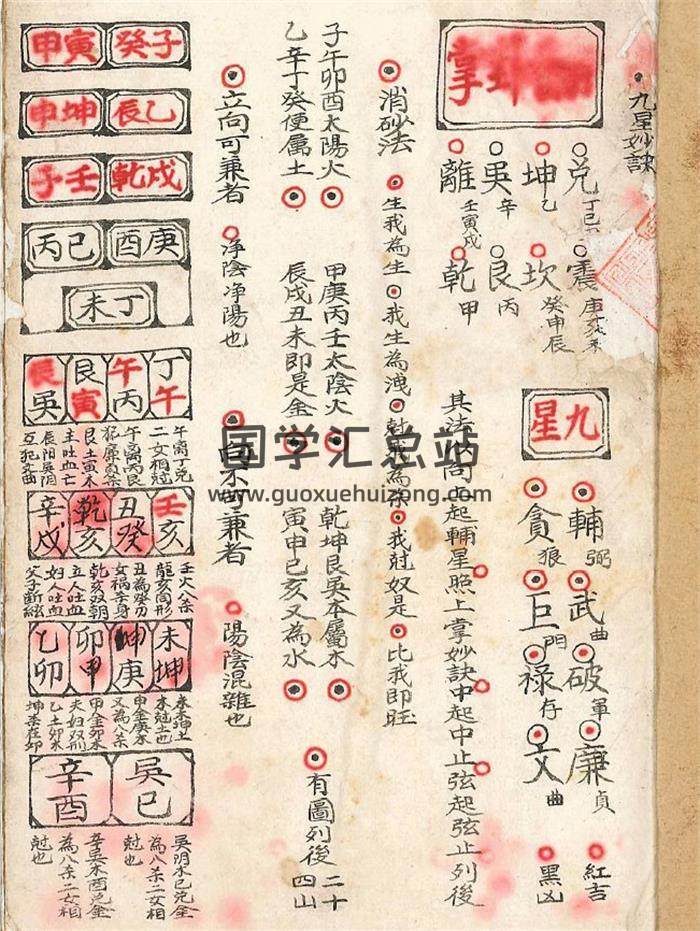 九星妙訣
掌
兌丁巳
震庚亥未
坤乙
坎癸申辰
巽辛
艮丙
離壬寅戌
乾甲
九星
輔弼
武曲
破軍
廉貞
紅吉
貪狼
巨門
祿存
文曲
黑凶
其法以向上起輔星照上掌妙訣中起中止弦起弦止列後
消砂法
生我為生
我生為洩
尅我為杀
我尅奴是
比我即旺
子午卯酉太陽火
甲庚丙壬太陰火
乾坤艮巽本屬木
有圖列後二十四山
乙辛丁癸便屬土
辰戌丑未即是金
寅申巳亥又為水
立向可兼者
净陰净陽也
向不可兼者
陽陰混雜也
癸子
甲寅
乙辰
申坤
乾戌
壬子
庚酉
丙巳
丁未
丁午
午丙
艮寅
辰巽
午离丁兌
二女相尅
午离丙艮
艮土寅木
主吐血亡
辰陽巽陰
互犯文曲
壬亥
丑癸
乾亥
辛戌
壬火八杀
龍亥同形
丑為癸刃
女禍杀身
乾亥双朝
立人吐血
妇人吐血
父子断絃
未坤
坤庚
卯甲
乙卯
未木坤土
木尅土也
申金庚木
又為八杀
甲金卯木
夫妇双刑
乙土卯木
坤杀在卯
巽巳
辛酉
巽阴木巳兌金
為八杀二女相
尅也
辛巽木酉兌金
為八杀二女相
尅也
国学汇总站
www.guoxuehuizong.com